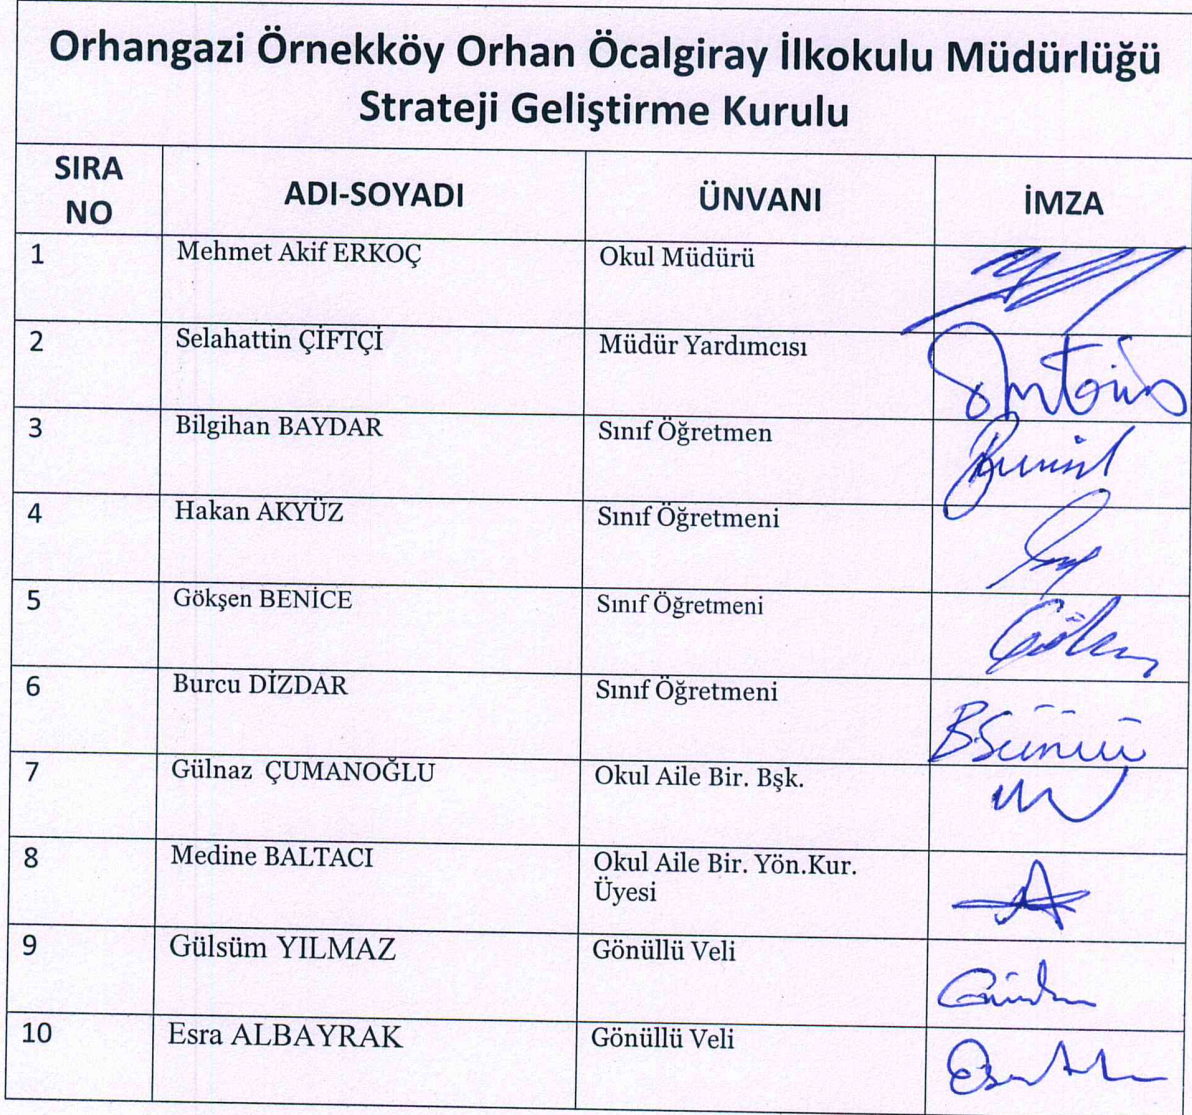 Orhangazi Örnekköy Orhan Öcalgiray İlkokulu Müdürlüğü
Strateji Geliştirme Kurulu
SIRA NO ADI-SOYADI ÜNVANI İMZA
1 Mehmet Akif ERKOÇ Okul Müdürü
2 Selahattin ÇİFTÇİ Müdür Yardımcısı
3 Bilgihan BAYDAR Sınıf Öğretmen
4 Hakan AKYÜZ Sınıf Öğretmeni
5 Gökşen BENİCE Sınıf Öğretmeni
6 Burcu DİZDAR Sınıf Öğretmeni
7 Gülnaz ÇUMANOĞLU Okul Aile Bir. Bşk.
8 Medine BALTACI Okul Aile Bir. Yön.Kur.
Üyesi
9 Gülsüm YILMAZ Gönüllü Veli
10 Esra ALBAYRAK Gönüllü Veli